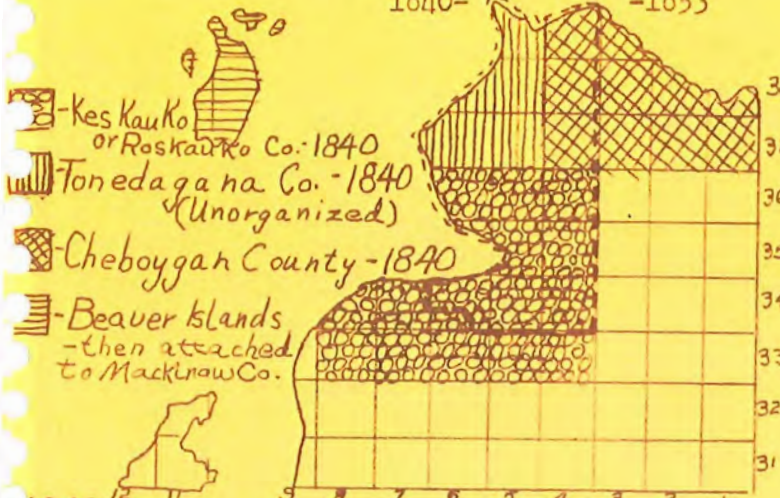 1840- -1853
-Kes Kau Ko
or Roskauko Co.-1840
-Tonedagana Co.-1840
(Unorganized)
-Cheboygan County-1840
-Beaver Islands
-then attached
to Mackinaw Co.
36
35
34
33
32
31
9 8 7 6 5 4 3 2 1